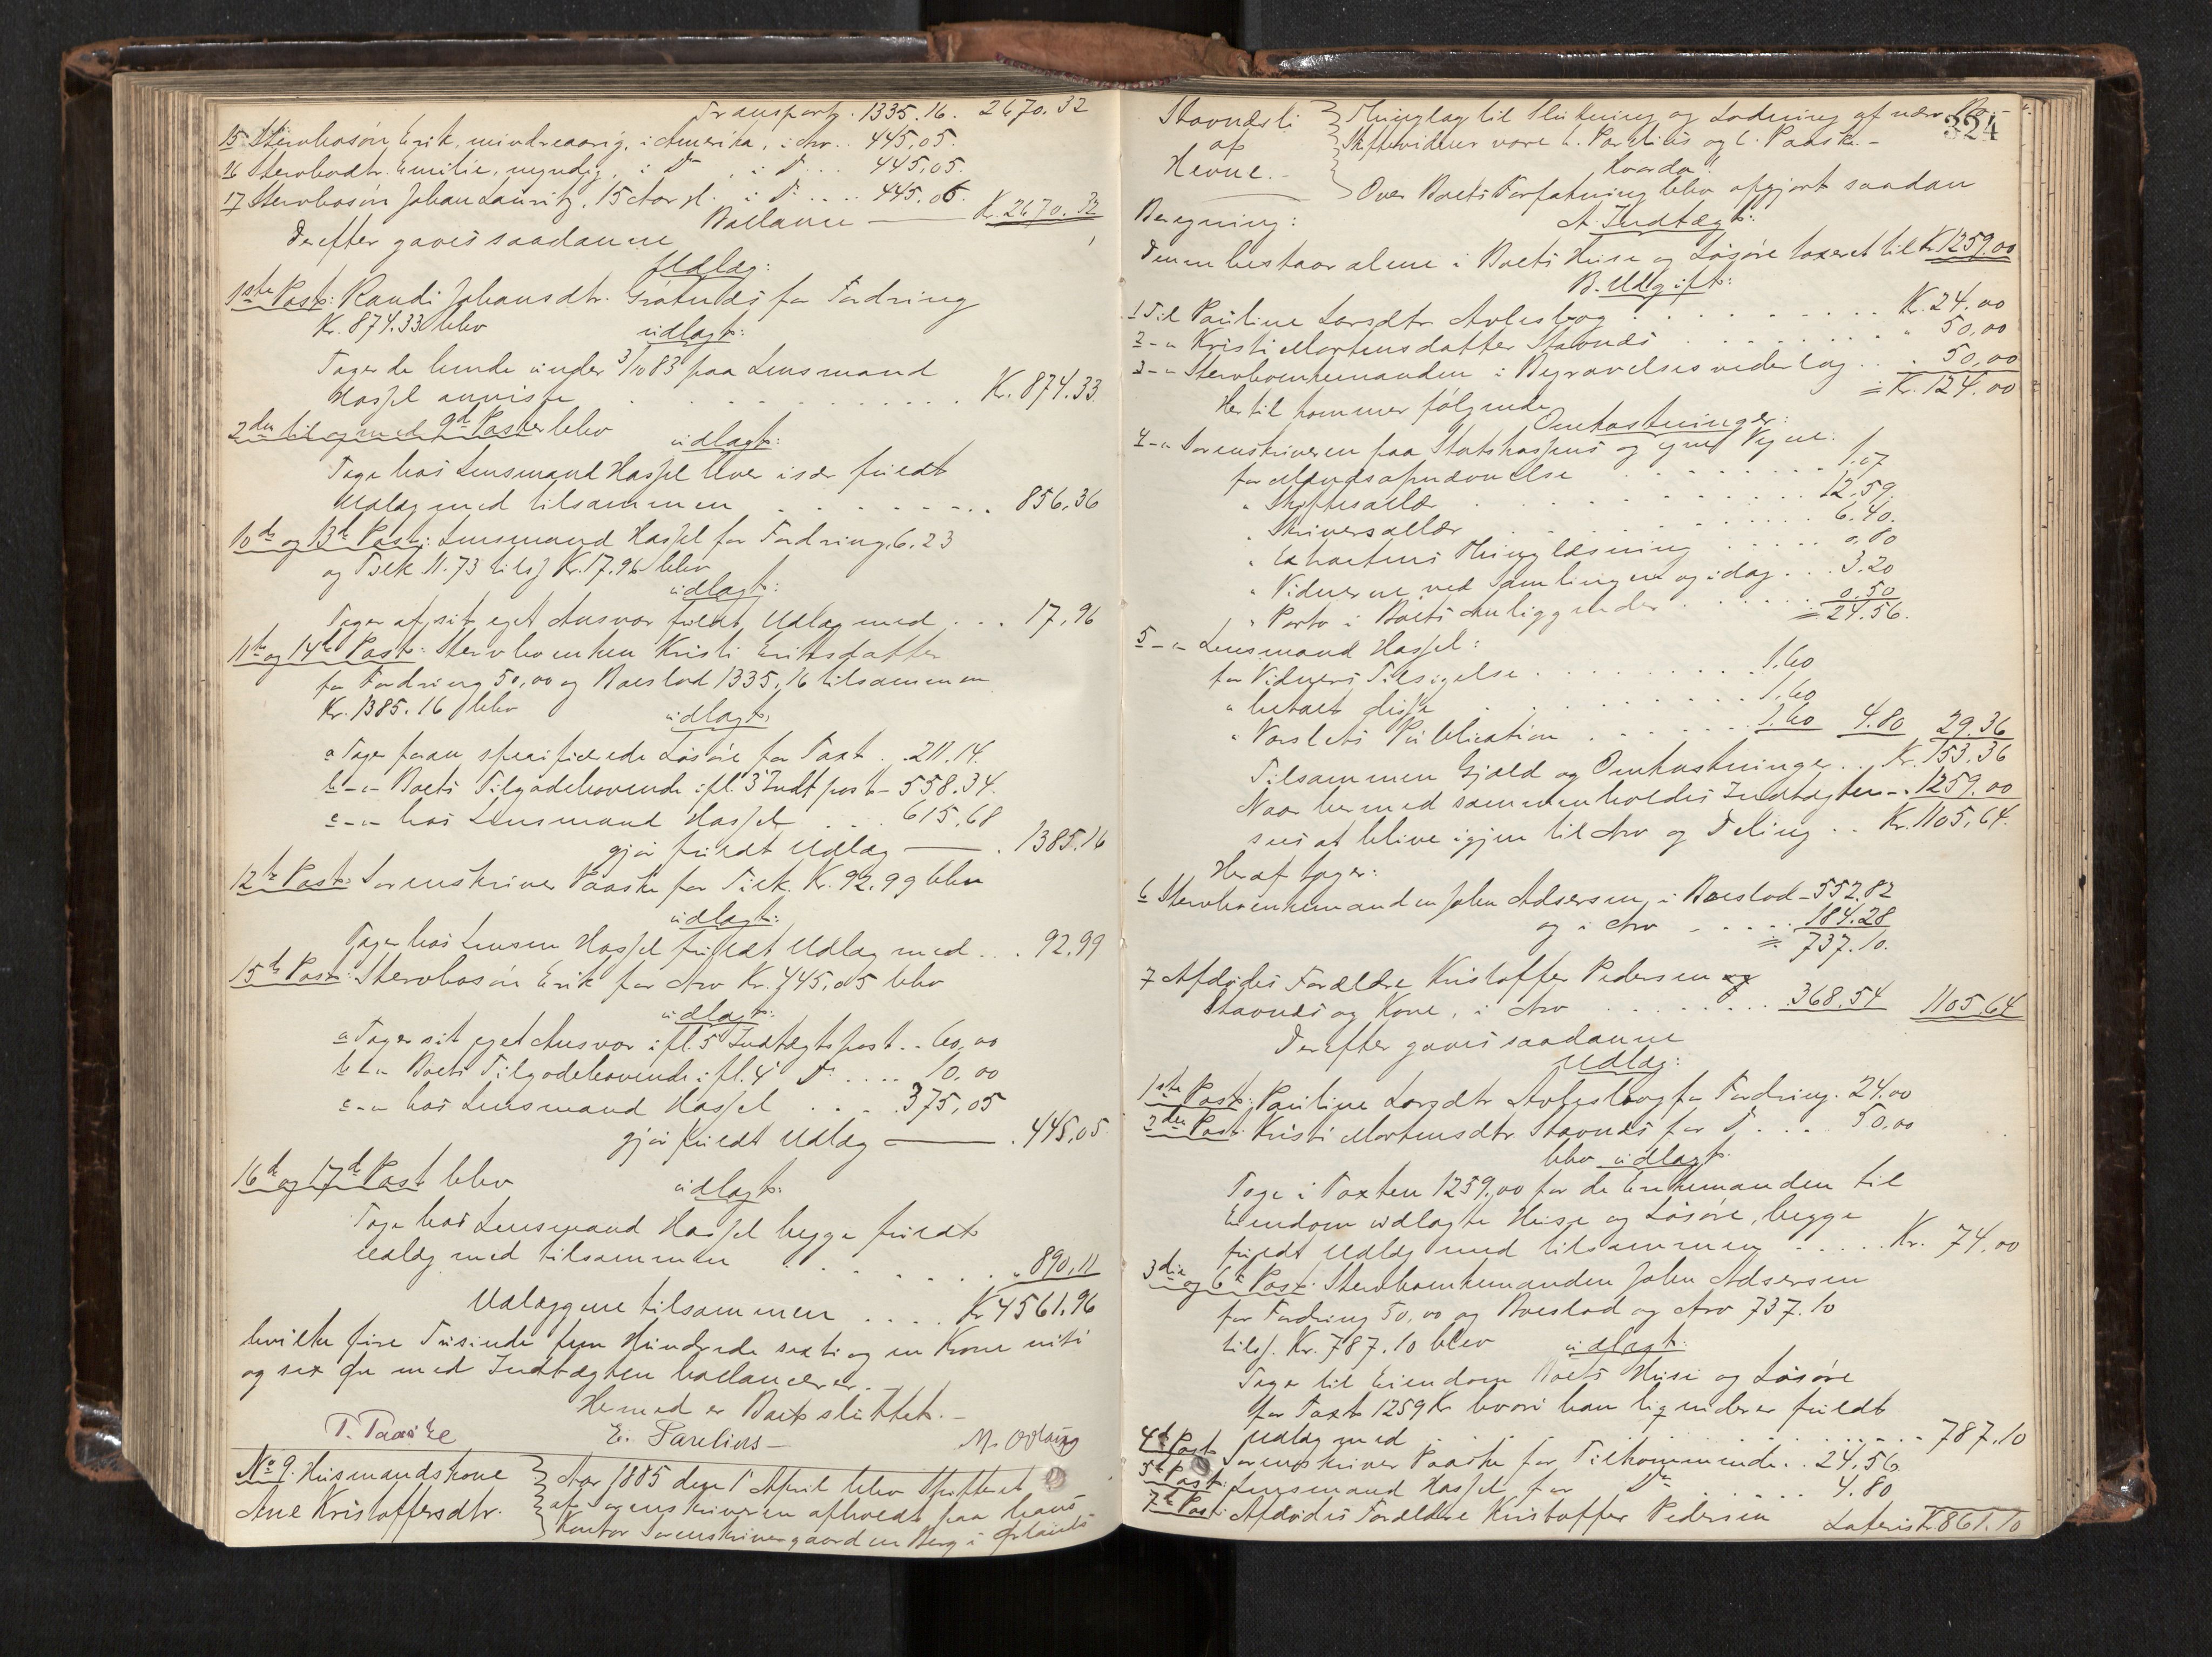 Transport 1335.16. 2670.32
15 Stervbosön Erik, mindreaarig, i Amerika, i Arv.. 445,05.
16 Stervbodtr. Emilie, myndig, i Do , i Do... 445,05.
17 Stervbosön Johan Lauritz, 15 Aar gl. i Do.... 445,06.
Ballance — Kr. 2670.32
Derefter gaves saadanne
Udlæg:
1ste Post: Randi Johansdtr. Grötnes for Fordring
Kr. 874.33 blev
udlagt:
Tager de hende under 3/10 83 paa Lensmand
Hassel anviste . . . Kr. 874.33.
2den til og med 9de Poster blev
udlagt:
Tage hos Lensmand Hassel hver især fuldt
Udlæg med tilsammen . . . 856,36
10de og 13de Post: Lensmand Hassel for Fordring 6.23
og Tilk. 11.73 tils. Kr. 17.96 blev
udlagt:
Tager af sit eget Ansvar fuldt Udlæg med . . . 17,96
11te og 14de Post: Stervboenken Kristi Eriksdatter
for Fordring 50,00 og Boeslod 1335,16 tilsammen
Kr. 1385.16 blev
udlagt:
a Tager foran specificerede Lösöre for Taxt . . 211.14.
b - " - Boets Tilgodehavende ifl. 3 Indt. post - 558.34.
c - " - hos Lensmand Hassel . . . 615,68
gjör fuldt Udlæg — . 1385.16
12te Post: Sorenskriver Paaske for Tilk. Kr. 92.99 blev
udlagt:
Tager hos Lensm. Hassel fuldt Udlæg med . . . 92,99
15de Post: Stervbosön Erik for Arv Kr. 445,05 blev
udlagt:
a Tager sit eget Ansvar ifl. 5 Indtægtspost . . 60,00
b - " - Boets Tilgodehavende ifl. 4 Do .... 10,00
c - " - hos Lensmand Hassel . . . 375,05
gjör fuldt Udlæg — . 445,05
16de og 17de Post blev
udlagt:
Tage hos Lensmand Hassel begge fuldt
Udlæg med tilsammen . . . 890,11
Udlæggene tilsammen .... Kr 4561.96
hvilke fire Tusinde fem Hundrede sexti og en Krone niti
og sex Øre med Indtægten ballancerer.
Hermed er Boet sluttet. -
P. Paaske E. Parelius -
No 9. Husmandskone
Ane Kristoffersdtr.
Aar 1885 den 1 April blev Skifteret
af Sorenskriveren afholdt paa hans
Kontor Sorenskrivergaarden Berg i Ørlands
324
Stavnesli
af
Hevne. -
Thinglag til Slutning og Lodning af nærv. Bo -
Skiftevidner vare E. Parelius og C. Paaske. -
hvorda!
Over Boets Forfatning blev opgjort saadan
Beregning:
A. Indtægt:
Denne bestaar alene i Boets Huse og Lösöre taxeret til Kr 1259.00
B. Udgift:
1 Til Pauline Larsdtr. . . . Kr. 24.00
2 - " Kristi Mortensdatter Stavnes . . . " 50,00
3 - " Stervboenkemanden i Begravelsesvederlag . . . 50,00
= Kr. 124.00
Hertil kommer fölgende
Omkostninger:
4 - " Sorenskriveren paa Statskassens og egne Vegne:
for Mandsopnævnelse . . . 1.07
" Skiftesallær . . . 12,59.
" Skriversallær . . . 6.40.
" Extractens Thinglæsning . . . 0,80
" Vidnerne ved Samlingen og idag . . . 3.20
" Porto i Boets Anliggender . . . 0,50
= 24.56.
5 - " Lensmand Hassel:
for Vidners Tilsigelse . . . 1.60
" betalt disse . . . 1,60
" Varslets Publication . . . 1.60 4.80 29.36
Tilsammen Gjæld og Omkostninger . . Kr. 153.36
Naar hermed sammenholdes Indtægten - . 1259.00
sees at blive igjen til Arv og Deling . . Kr. 1105,64.
Heraf tager:
6 Stervboenkemanden John Adsersen, i Boeslod - 552.82
og i Arv - . . . 184.28
= 737.10.
7 Afdödes Forældre Kristoffer Pedersen og
Stavnes og Kone, i Arv . . . 368.54 1105,64
Derefter gaves saadanne
Udlæg:
1ste Post: Pauline Larsdtr. for Fordring. 24.00
2den Post: Kristi Mortensdtr. Stavnes for Do. . . 50,00
blev udlagt:
Tage i Taxten 1259,00 for de Enkemanden til
Eiendom udlagte Huse og Lösöre, begge
fuldt Udlæg med tilsammen . . . Kr. 74,00
3die og 6te Post: Stervboenkemanden John Adsersen
for Fordring 50,00 og Boeslod og Arv 737.10
tils. Kr. 787.10 blev udlagt:
Tager til Eiendom Boets Huse og Lösöre
for Taxt 1259 Kr. hvori han liqviderer fuldt
Udlæg med . . . 787.10
4de Post Sorenskriver Paaske for Tilkommende . . 24,56
5te Post: Lensmand Hassel for Do . . . 4.80
7de Post: Afdödes Forældre Kristoffer Pedersen
Lateris Kr 861.10